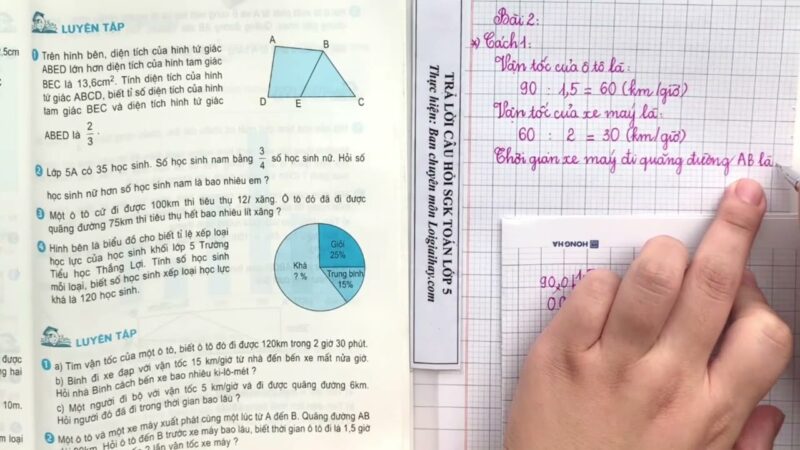 LUYỆN TẬP
1 Trên hình bên, diện tích của hình tứ giác
ABED lớn hơn diện tích của hình tam giác
BEC là 13,6cm². Tính diện tích của hình
tứ giác ABCD, biết tỉ số diện tích của hình
tam giác BEC và diện tích hình tứ giác
ABED là 2/3.
A
B
D
E
C
2 Lớp 5A có 35 học sinh. Số học sinh nam bằng 3/4 số học sinh nữ. Hỏi số
học sinh nữ hơn số học sinh nam là bao nhiêu em ?
3 Một ô tô cứ đi được 100km thì tiêu thụ 12l xăng. Ô tô đó đã đi được
quãng đường 75km thì tiêu thụ hết bao nhiêu lít xăng ?
4 Hình bên là biểu đồ cho biết tỉ lệ xếp loại
học lực của học sinh khối lớp 5 Trường
Tiểu học Thắng Lợi. Tính số học sinh
mỗi loại, biết số học sinh xếp loại học lực
khá là 120 học sinh.
Khá
? %
Giỏi
25%
Trung bình
15%
LUYỆN TẬP
1 a) Tìm vận tốc của một ô tô, biết ô tô đó đi được 120km trong 2 giờ 30 phút.
b) Bình đi xe đạp với vận tốc 15 km/giờ từ nhà đến bến xe mất nửa giờ.
Hỏi nhà Bình cách bến xe bao nhiêu ki-lô-mét ?
c) Một người đi bộ với vận tốc 5 km/giờ và đi được quãng đường 6km.
Hỏi người đó đã đi trong thời gian bao lâu ?
2 Một ô tô và một xe máy xuất phát cùng một lúc từ A đến B. Quãng đường AB
90km. Hỏi ô tô đến B trước xe máy bao lâu, biết thời gian ô tô đi là 1,5 giờ
2 lần vận tốc xe máy ?
,5cm
được
g hai
10m.
m loại
TRẢ LỜI CÂU HỎI SGK TOÁN LỚP 5
Thực hiện: Ban chuyên môn Loigiaihay.com
Bài 2:
*) Cách 1:
Vận tốc của ô tô là:
90 : 1,5 = 60 (km/giờ)
Vận tốc của xe máy là:
60 : 2 = 30 (km/giờ)
Thời gian xe máy đi quãng đường AB là
HONG HA
90,0